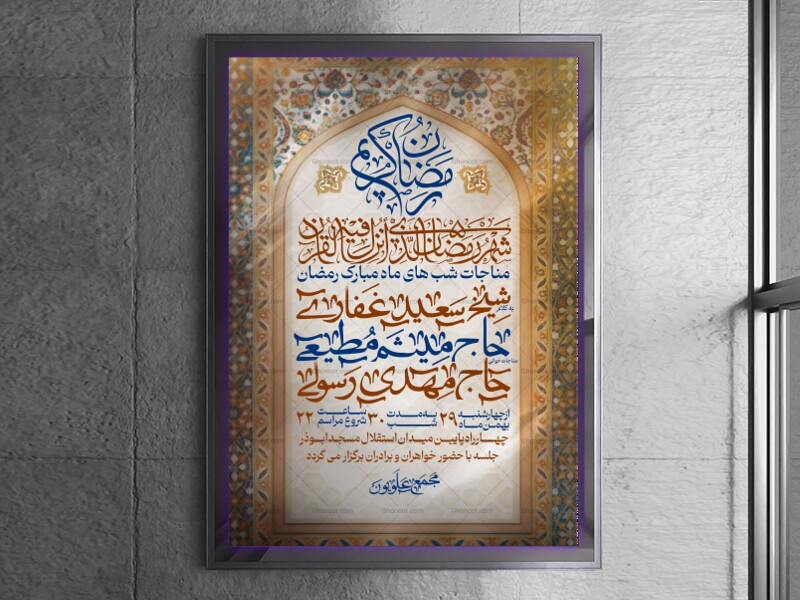 رمضان کریم
شهر رمضان الذي أنزل فيه القرآن
مناجات شب های ماه مبارک رمضان
شیخ سعید غفاری
به کلام
حاج میثم مطیعی
مناجات خوانی
حاج مهدی رسولی
از چهارشنبه ۲۹ بهمن ماه به مدت ۳۰ شب ساعت شروع مراسم ۲۲
چهارراه پایین میدان استقلال مسجد ابوذر
جلسه با حضور خواهران و برادران برگزار می گردد
مجمع علویون
Ghonoot.com